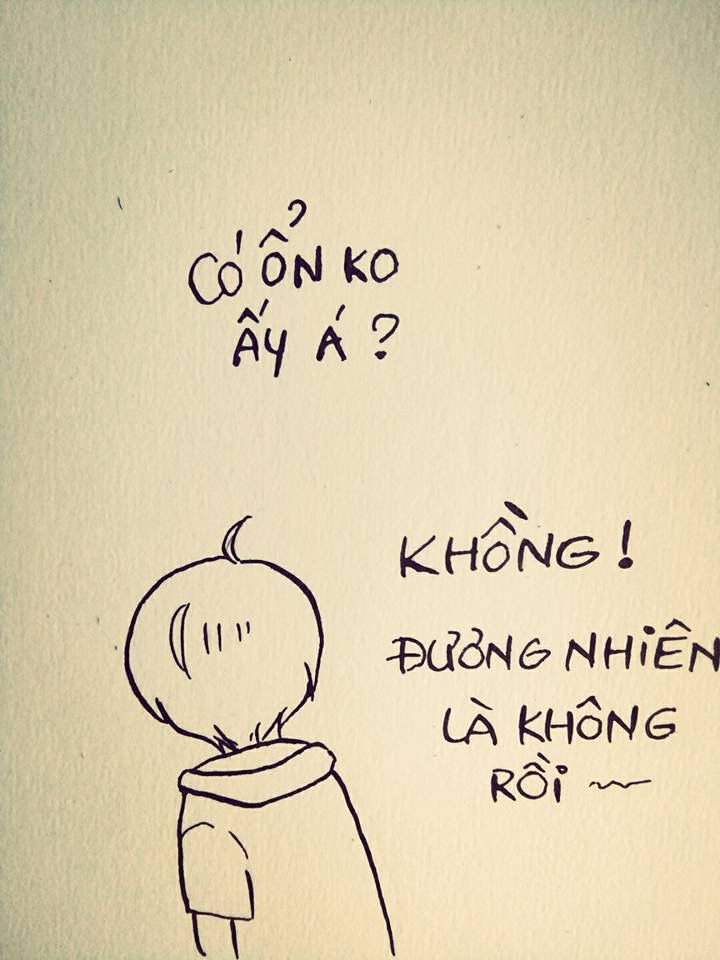 CÓ ỔN KO
ẤY Á?
KHỒNG!
ĐƯƠNG NHIÊN
LÀ KHÔNG
RỒI ~